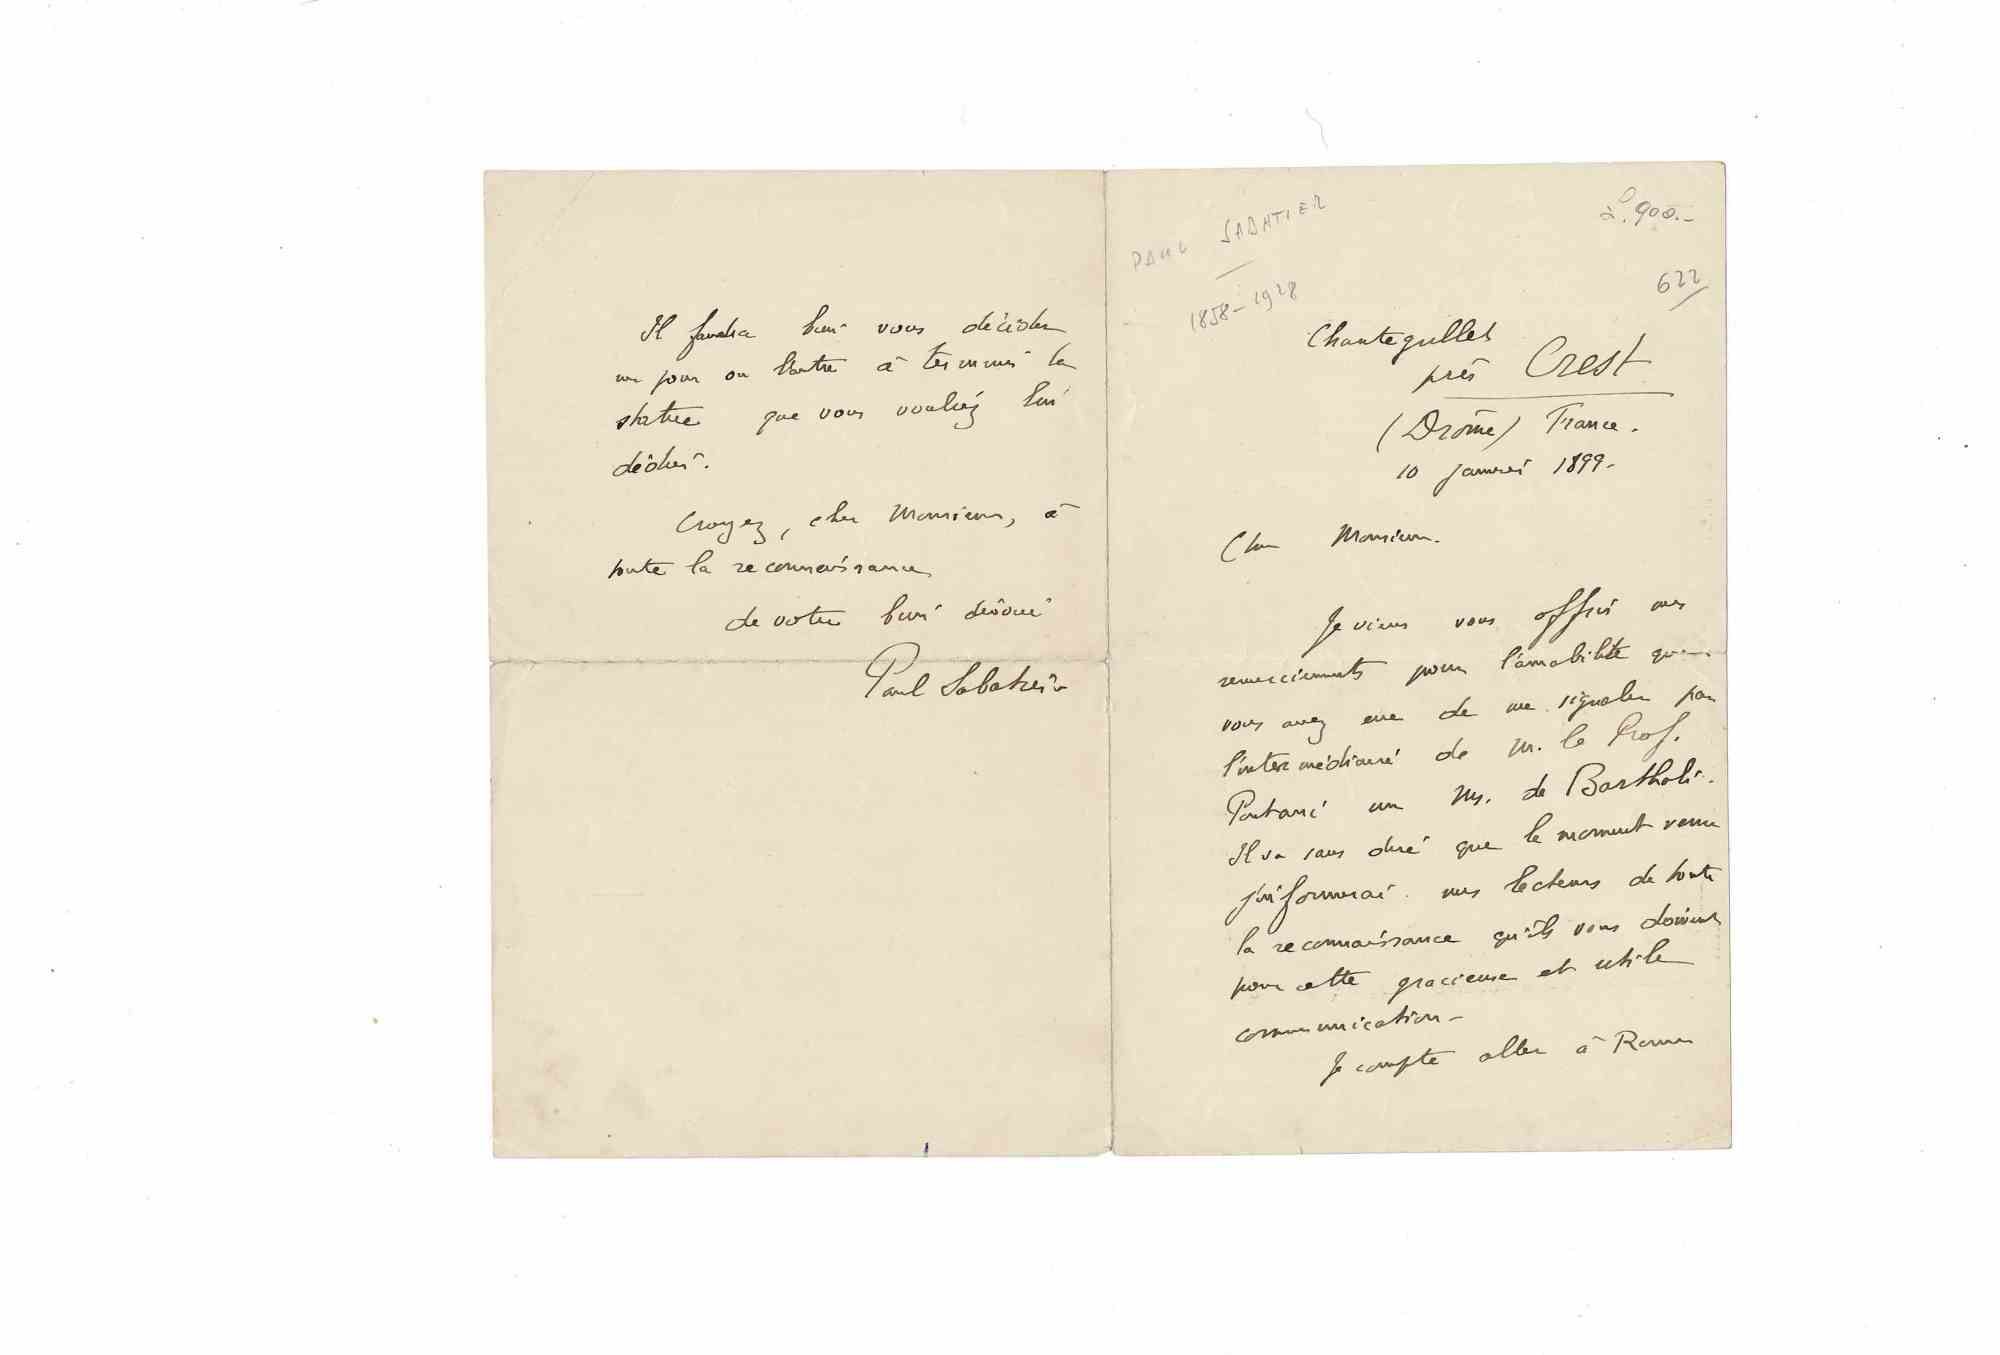 PAUL SABATIER
1858-1928
L. 900.-
622
Chantegrillet
près Crest
(Drôme) France.
10 janvier 1899.
Cher Monsieur.
Je viens vous offrir mes
remerciements pour l'amabilité que
vous avez eue de me signaler par
l'intermédiaire de M. le Prof.
un Ms. de Bartholi.
Il va sans dire que le moment venu
j'informerai mes lecteurs de toute
la reconnaissance qu'ils vous doivent
pour cette gracieuse et utile
communication-
Je compte aller à Rome
Il faudra bien vous décider
un jour ou l'autre à terminer la
statue que vous vouliez lui
dédier.
Croyez, cher Monsieur, à
toute la reconnaissance
de votre bien dévoué
Paul Sabatier